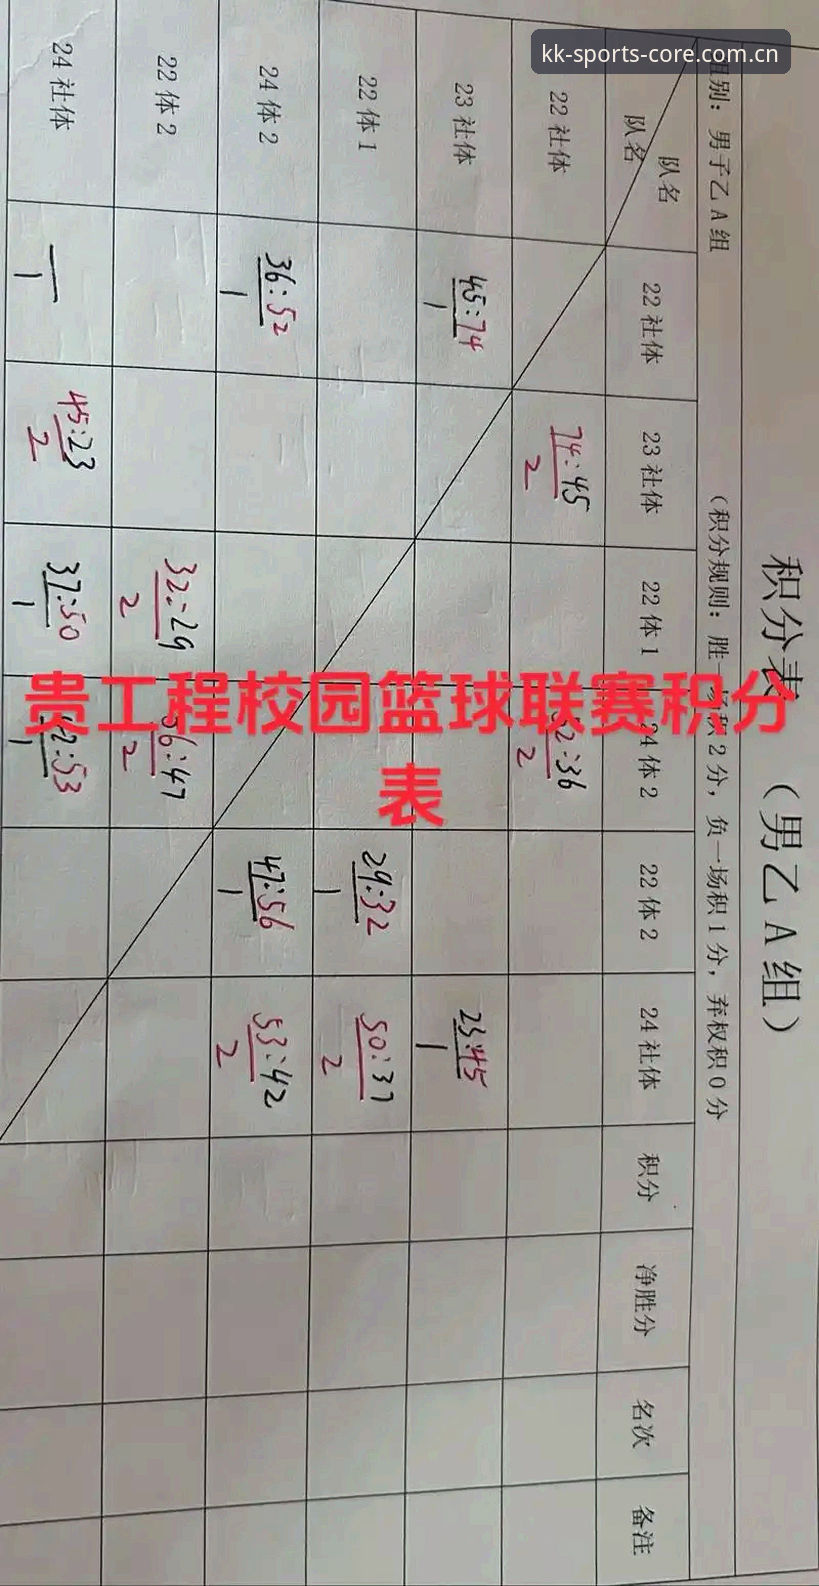 kk-sports-core.com.cn
贵工程校园篮球联赛积分
表
积分表 （男乙A组）
组别：男子乙A组 （积分规则：胜一场积2分，负一场积1分，弃权积0分
队名
队名
22社体 23社体 22体1 24体2 22体2 24社体 积分 净胜分 名次 备注
22社体 74:45 52:36
2 2
23社体 45:74 23:45
1 1
22体1 29:32 50:37
1 2
24体2 36:52 47:56 53:42
1 1 2
22体2 32:29 56:47
2 2
24社体 — 45:23 37:50 42:53
1 2 1 1